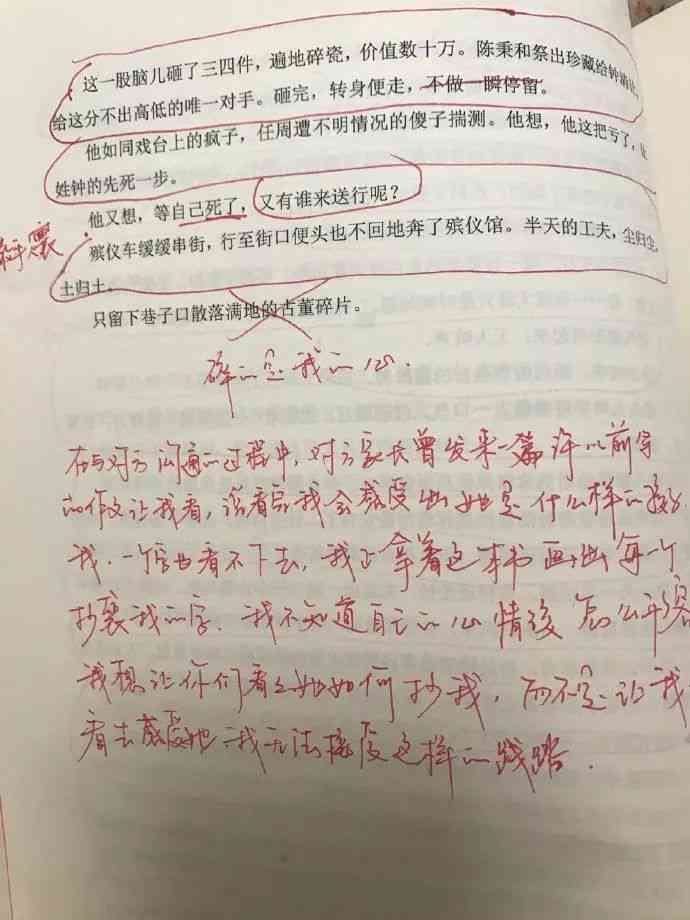 这一股脑儿砸了三四件，遍地碎瓷，价值数十万。陈秉和祭出珍藏给钟
给这分不出高低的唯一对手。砸完，转身便走，不做一瞬停留。
他如同戏台上的疯子，任周遭不明情况的傻子揣测。他想，他这把亏了，让
姓钟的先死一步。
他又想，等自己死了，又有谁来送行呢？
殡仪车缓缓串街，行至街口便头也不回地奔了殡仪馆。半天的工夫，尘归尘，
土归土。
只留下巷子口散落满地的古董碎片。
碎的是我的心.
在与对方沟通的过程中，对方家长曾发来一篇许以前写
的作文让我看，说看完我会感受出她是什么样的孩子
我，一个字也看不下去，我正拿着这本书画出每一个
抄袭我的字，我不知道自己的心情该怎么平缓
我想让你们看看她如何抄我，而不是让我
看去感受她，我无法接受这样的践踏.